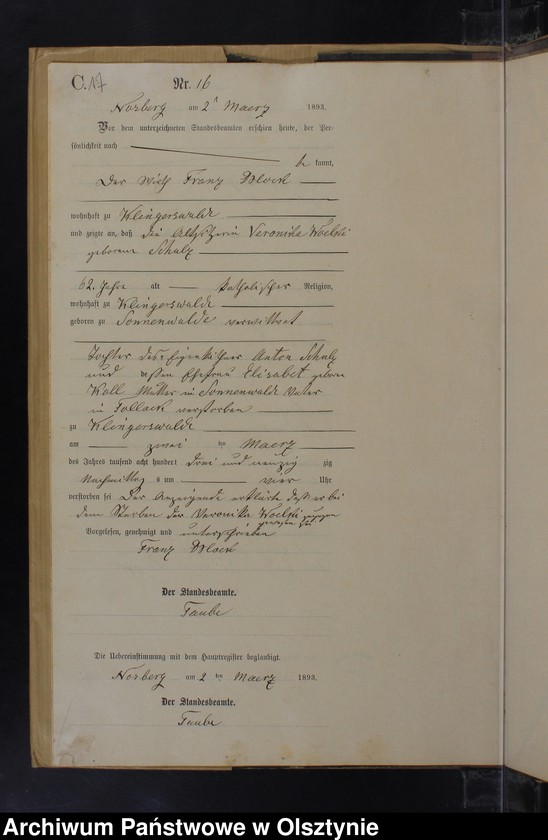 C. 17 Nr. 16
Norberg am 2ⁿ Maerz 1893.
Vor dem unterzeichneten Standesbeamten erschien heute, der Per-
sönlichkeit nach
be kannt,
Der Wirth Franz Block
wohnhaft zu Klingerswalde
und zeigte an, daß die Altsitzerin Veronika Woelki
geborene Schulz
62 Jahre alt katholischer Religion,
wohnhaft zu Klingerswalde
geboren zu Sonnenwalde verwittwet
Tochter des Eigenkäthner Anton Schulz
und dessen Ehefrau Elisabet geborne
Koll Mutter in Sonnenwalde Vater
in Tollack verstorben
zu Klingerswalde
am zwei ten Maerz
des Jahres tausend acht hundert drei und neunzig zig
Nachmittag s um vier Uhr
verstorben sei Der Anzeigende erklärte daß er bei
dem Sterben der Veronika Woelki zugegen
gewesen sei.
Vorgelesen, genehmigt und unterschrieben
Franz Block
Der Standesbeamte.
Taube
Die Uebereinstimmung mit dem Hauptregister beglaubigt.
Norberg am 2 ten Maerz 1893.
Der Standesbeamte.
Taube
Archiwum Państwowe w Olsztynie